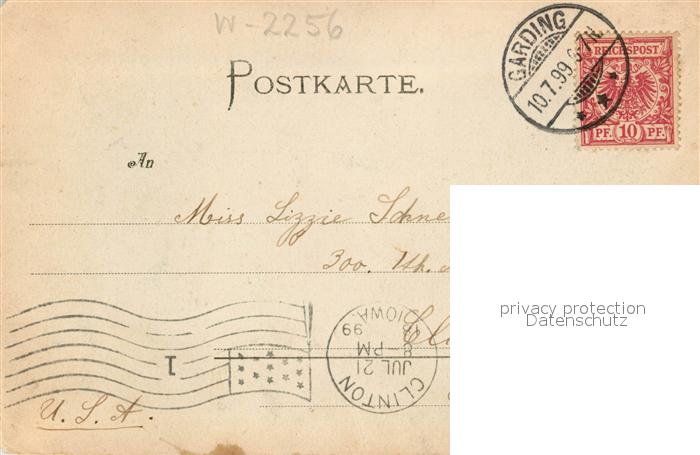 W-2256
POSTKARTE.
GARDING
10.7.99 6-7N
REICHSPOST
PF. 10 PF.
An
Miss Lizzie Schne
300.
privacy protection
Datenschutz
1
CLINTON
JUL 21
8-PM
99
IOWA.
U.S.A.